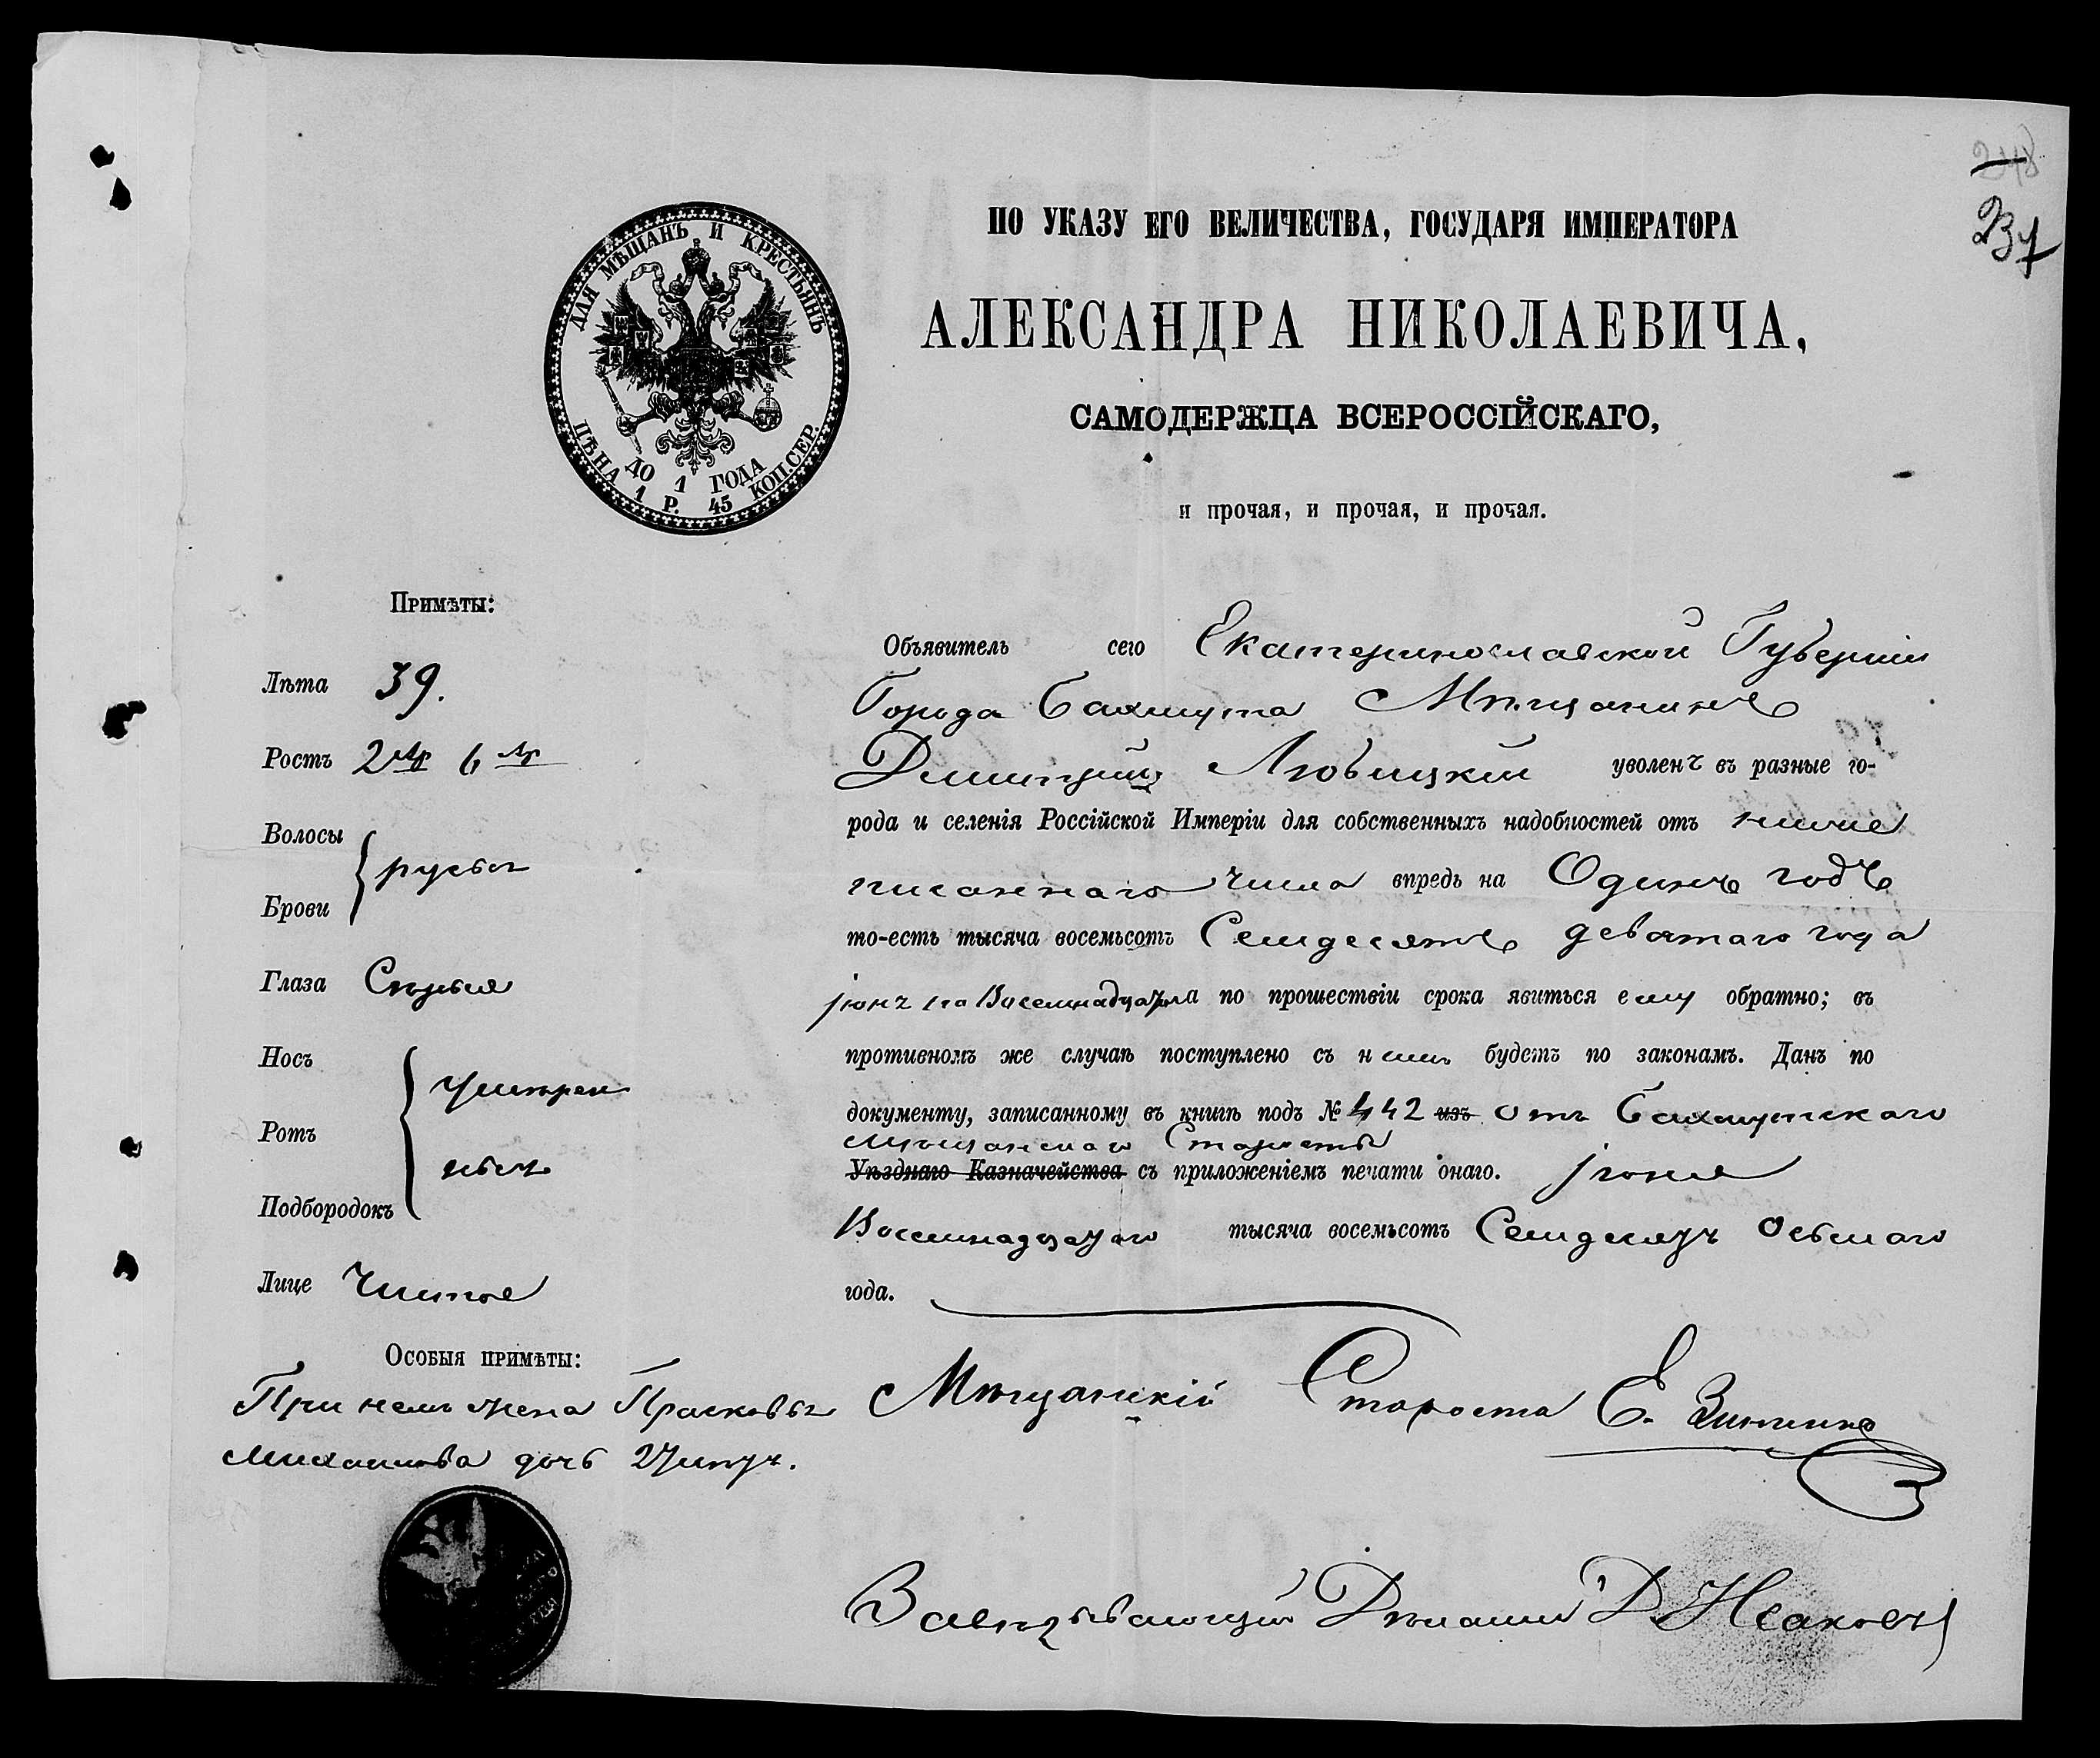 248
237
ДЛЯ МѢЩАНЪ И КРЕСТЬЯНЪ
ДО 1 ГОДА
ЦѢНА 1 Р. 45 КОП.СЕР.
ПО УКАЗУ ЕГО ВЕЛИЧЕСТВА, ГОСУДАРЯ ИМПЕРАТОРА
АЛЕКСАНДРА НИКОЛАЕВИЧА,
САМОДЕРЖЦА ВСЕРОССІЙСКАГО,
и прочая, и прочая, и прочая.
Примѣты:
Лѣта 39.
Ростъ 2 ар 6 вр
Волосы
русые
Брови
Глаза Сѣрые
Носъ
умѣрен
Ротъ
ные
Подбородокъ
Лице Чистое
Особыя примѣты:
При немъ жена Прасковья
Михайлова дочь
Объявитель сего Екатеринославской Губерніи
Города Бахмута Мѣщанинъ
Дмитрій Любицкій уволенъ въ разные го-
рода и селенія Россійской Имперіи для собственныхъ надобностей отъ ниже
писаннаго числа впредь на Одинъ годъ
то-есть тысяча восемьсотъ Семдесятъ девятаго года
іюня по Восемнадцатое а по прошествіи срока явиться ему обратно; въ
противномъ же случаѣ поступлено съ нимъ будетъ по законамъ. Данъ по
документу, записанному въ книгѣ подъ № 442 изъ отъ Бахмутскаго
Мѣщанскаго Старосты
Уѣзднаго Казначейства съ приложеніемъ печати онаго. іюня
Восемнадцатаго тысяча восемьсотъ Семдесятъ Осьмаго
года.
Мѣщанскій Староста Е.
Завѣдывающій Дѣлами Д. Исаковъ